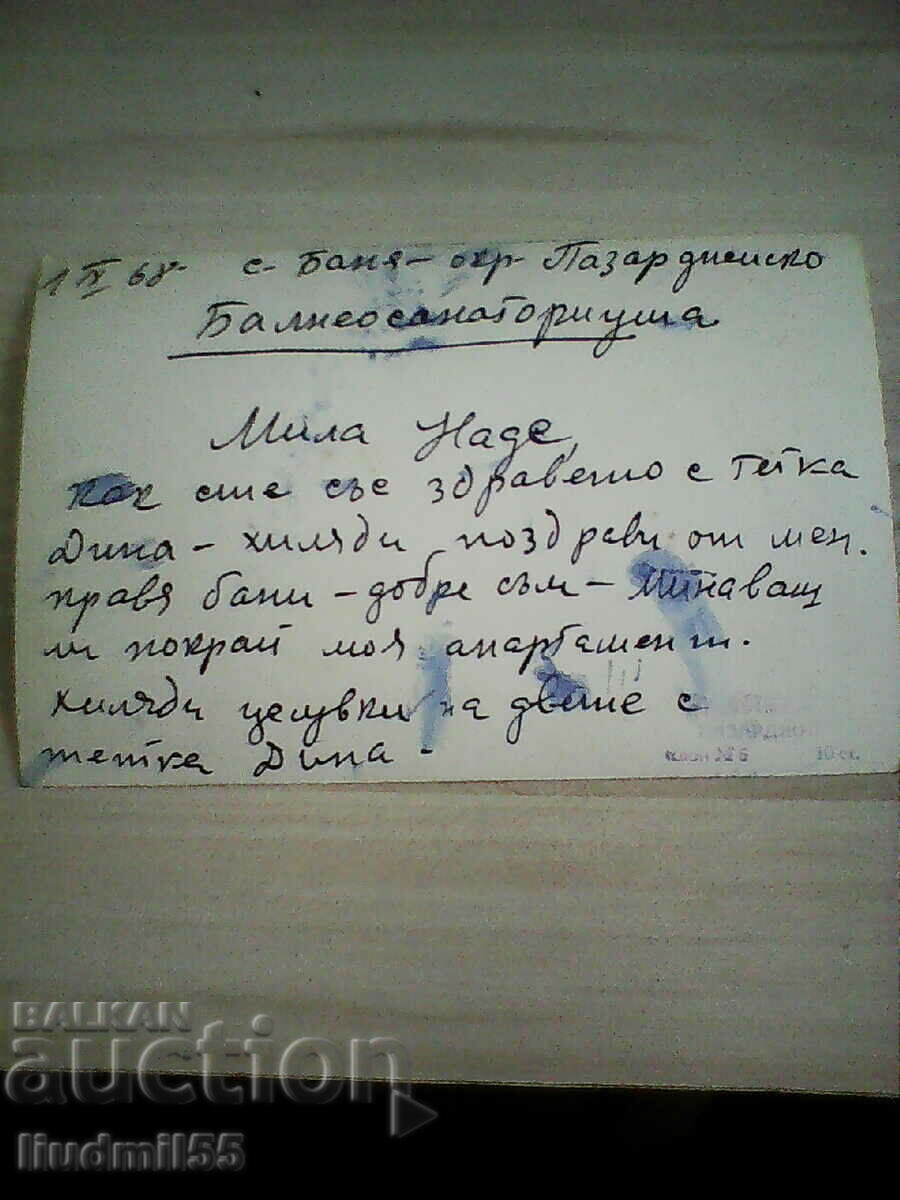 1 IV 68 с. Баня - окр. Пазарджишко
Балнеосанаториума
Мила Наде,
как сте със здравето с тетка
Дина - хиляди поздрави от мен.
правя бани - добре съм - Минаваш
ли покрай моя апартамент.
Хиляди целувки на двете с
тетка Дина -
№ 6 10 ст.
BALKAN
auction
liudmil55